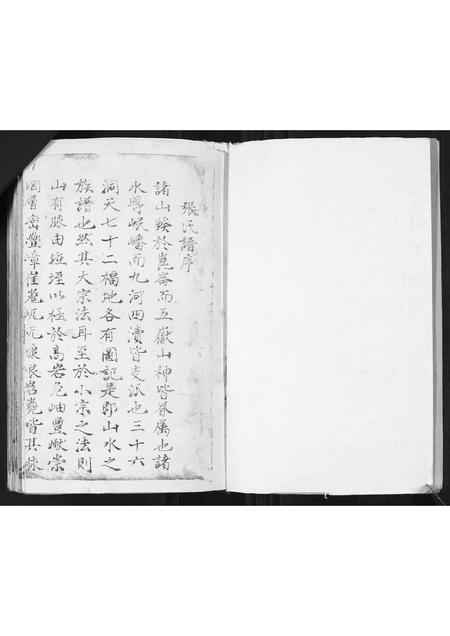 張氏譜序
諸山發於崑崙而五嶽山神皆眷属也諸
水導岷嶓而九河四瀆皆支派也三十六
洞天七十二福地各有圖記是郡山水之
族譜也然其大宗法耳至於小宗之法則
山有脉由垤以極於高岩危岫豐巘崇
岡層巒疊嶂崔嵬皆其